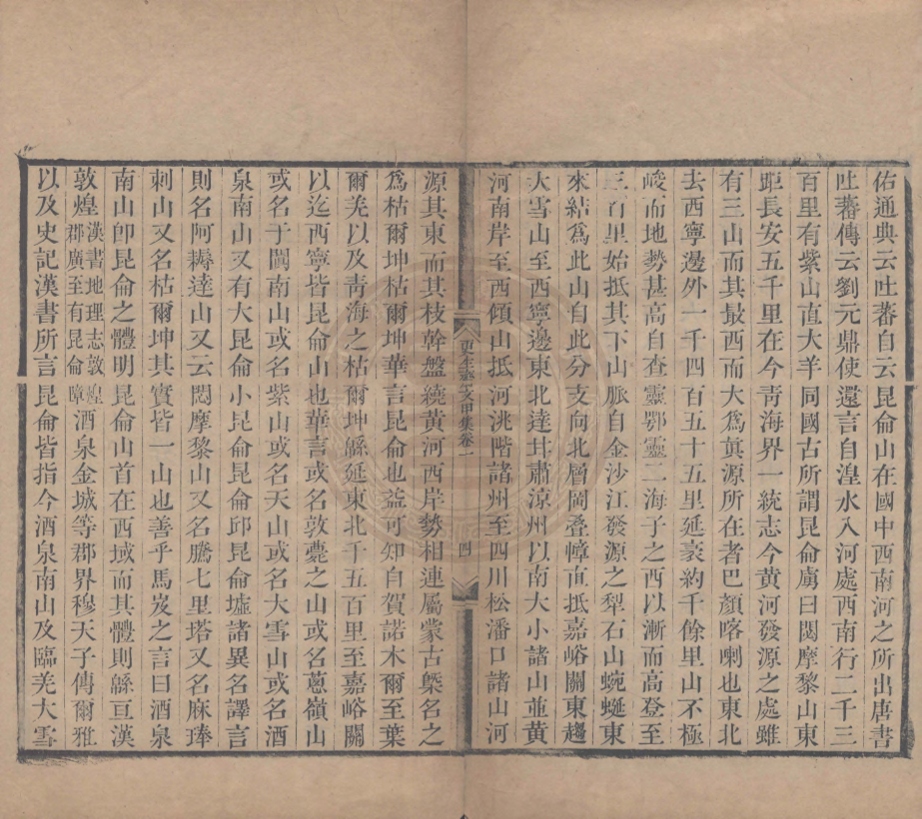 佑通典云吐蕃自云昆侖山在國中西南河之所出唐書
吐蕃傳云劉元鼎使還言自湟水入河處西南行二千三
百里有紫山直大羊同國古所謂昆侖虜曰悶摩黎山東
距長安五千里在今靑海界一統志今黃河發源之處雖
有三山而其最西而大爲眞源所在者巴顏喀喇也東北
去西寧邊外一千四百五十五里延袤約千餘里山不極
峻而地勢甚高自查靈鄂靈二海子之西以漸而高登至
三百里始抵其下山脈自金沙江發源之犁石山蜿蜒東
來結爲此山自此分支向北層岡叠幛直抵嘉峪關東趨
大雪山至西寧邊東北達甘肅涼州以南大小諸山並黃
河南岸至西傾山抵河洮階諸州至四川松潘口諸山河
更生齋文甲集卷一
四
源其東而其枝幹盤繞黃河西岸勢相連屬蒙古槩名之
爲枯爾坤枯爾坤華言昆侖也益可知自賀諾木爾至葉
爾羌以及靑海之枯爾坤緜延東北千五百里至嘉峪關
以迄西寧皆昆侖山也華言或名敦薨之山或名蔥嶺山
或名于闐南山或名紫山或名天山或名大雪山或名酒
泉南山又有大昆侖小昆侖昆侖邱昆侖墟諸異名譯言
則名阿耨達山又云悶摩黎山又名騰七里塔又名麻琫
刺山又名枯爾坤其實皆一山也善乎馬岌之言曰酒泉
南山卽昆侖之體明昆侖山首在西域而其體則緜亘漢
敦煌漢書地理志敦煌郡廣至有昆侖障酒泉金城等郡界穆天子傳爾雅
以及史記漢書所言昆侖皆指今酒泉南山及臨羌大雪